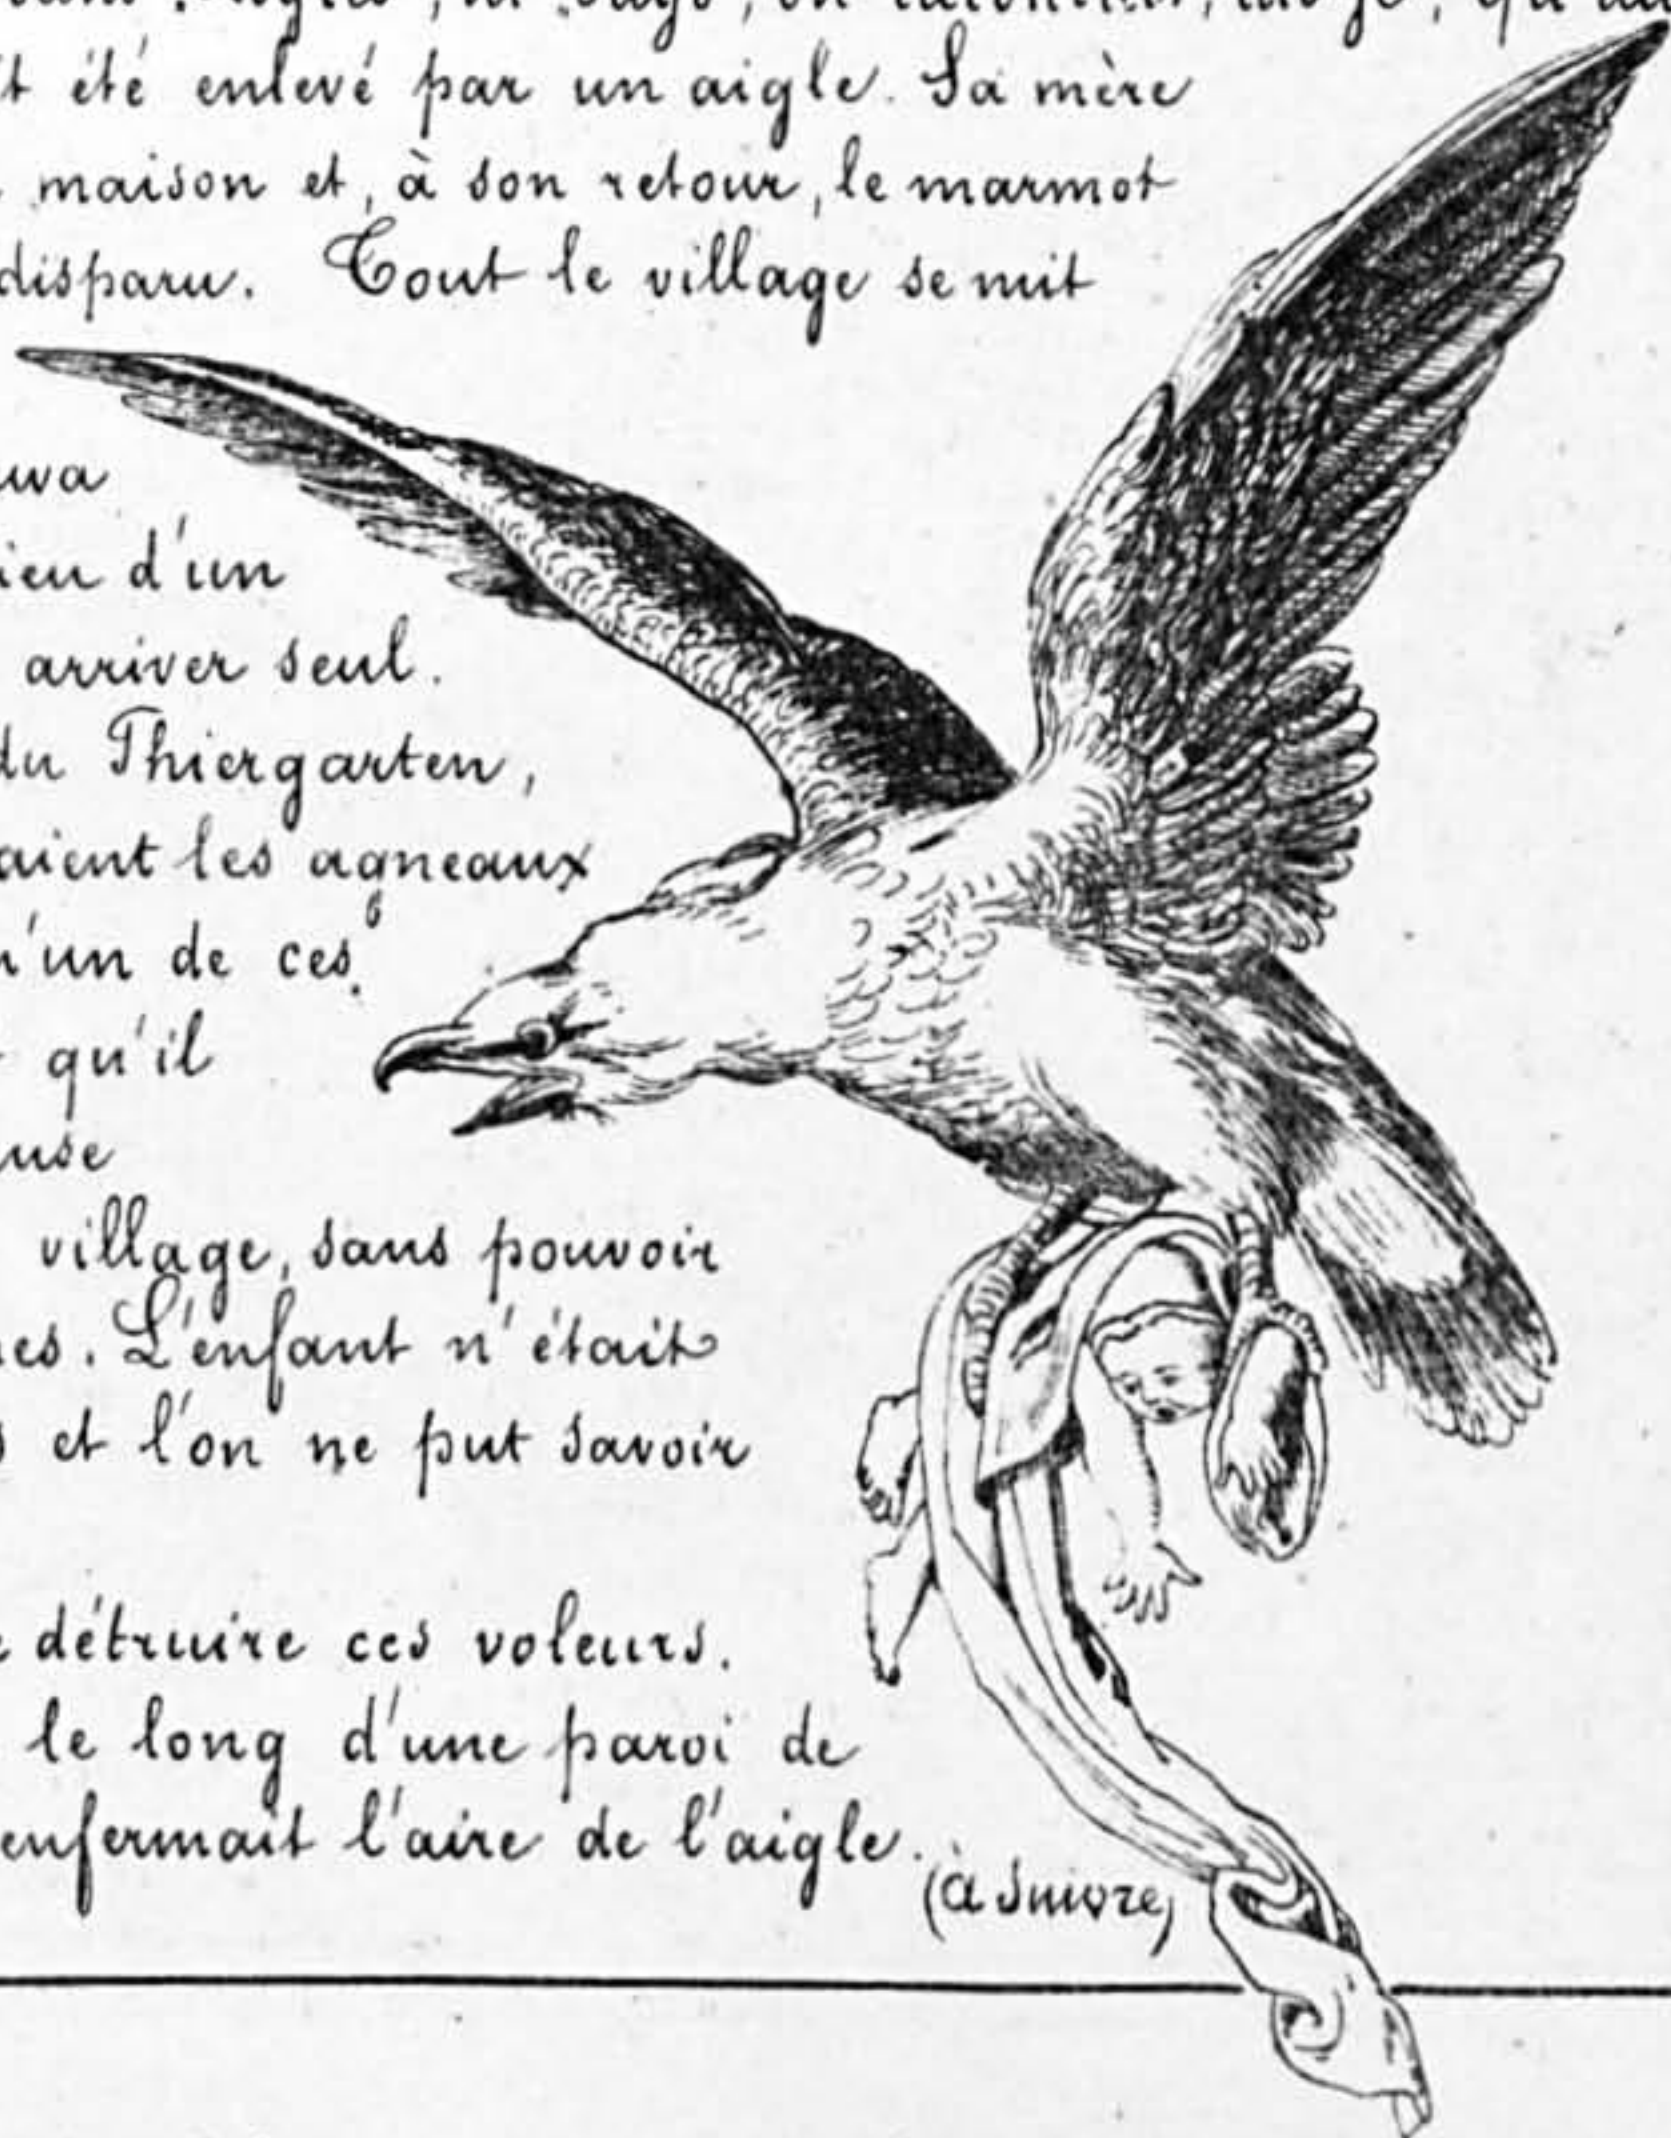 été enlevé par un aigle. Sa mère
maison et, à son retour, le marmot
disparu. Tout le village se mit
d'un
arriver seul.
du Thiergarten,
aient les agneaux
'un de ces
qu'il
use
village, sans pouvoir
es. L'enfant n'était
et l'on ne put savoir
détruire ces voleurs.
le long d'une paroi de
enfermait l'aire de l'aigle.
(à suivre)